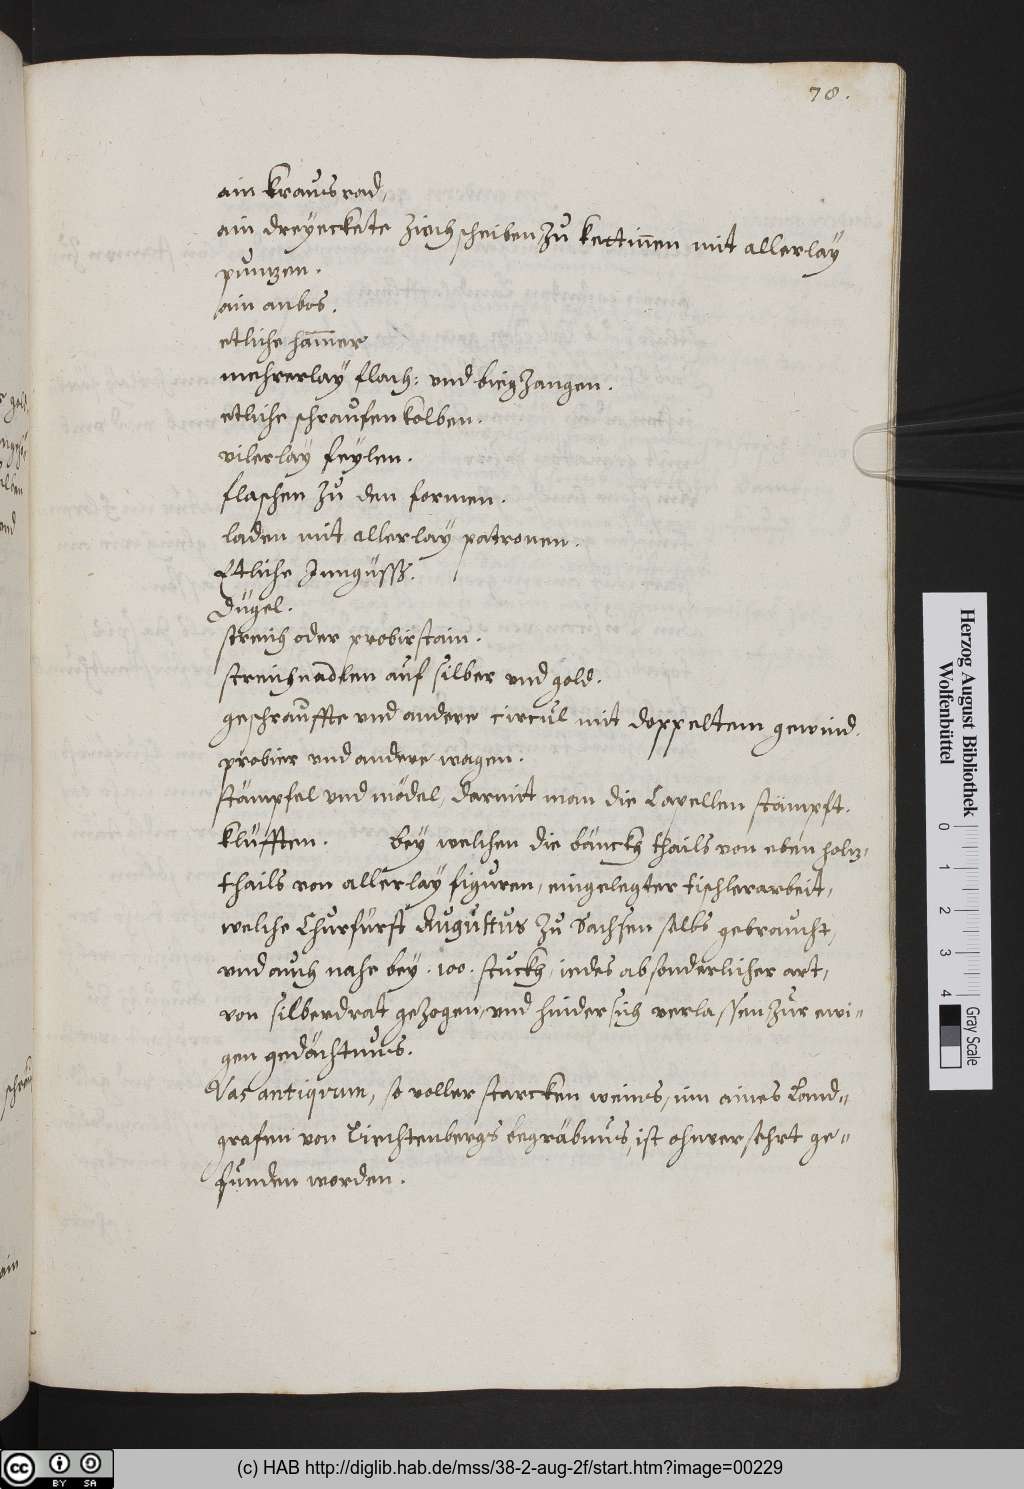 78.
ain krausrad,
ain dreyeckete ziehscheiben zu kettinen mit allerlay
puntzen.
ain anbos.
etliche hamer
mehrerlay flach: und biegzangen.
etliche schraufenkolben.
vilerlay feylen.
flaschen zu den formen.
laden mit allerlay patronen.
Etliche Inngüsß.
Dügel.
streich oder probirstain.
streichnadlen auf silber und gold.
geschrauffte und andere circul mit doppeltem gewind.
probier und andere wagen.
stämpfel und mödel, darmit man die Capellen stämpft.
klufften. bey welchen die bänckh thails von eben holtz,
thails von allerlay figuren, eingelegter tischlerarbeit,
welche Churfürst Augustus zu Sachsen selbs gebraucht,
und auch nahe bey .100. stuckh, iedes absonderlicher art,
von silberdrat gezogen, und hinder sich verlassen zur ewi-
gen gedächtnus.
Vas antiqvum, so voller starcken weins, inn aines Land-
grafen von Liechtenbergs begräbnus, ist ohnversehrt ge-
funden worden.
Herzog August Bibliothek
Wolfenbüttel
0 1 2 3 4
Gray Scale
cc BY SA
(c) HAB http://diglib.hab.de/mss/38-2-aug-2f/start.htm?image=00229